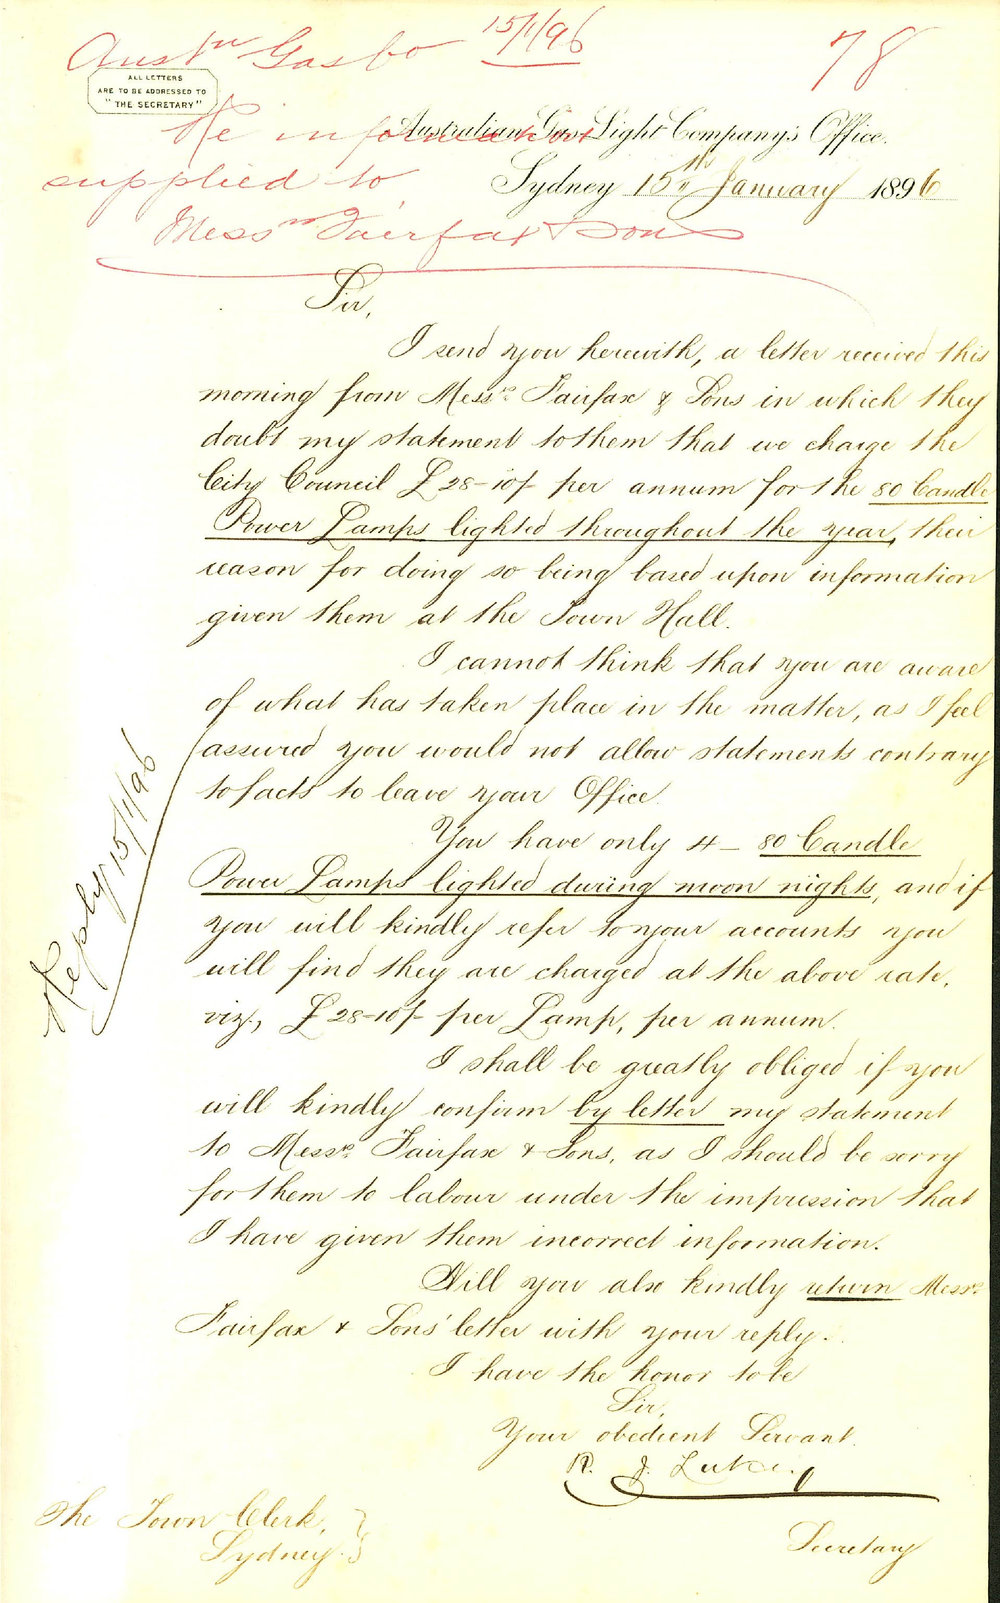 Austn Gas Co 15/1/96
78
ALL LETTERS
ARE TO BE ADDRESSED TO
"THE SECRETARY"
Re information
Australian Gas Light Company's Office.
supplied to
Sydney 15th January 1896
Messrs Fairfax & Sons
Sir,
I send you herewith, a letter received this
morning from Messrs. Fairfax & Sons in which they
doubt my statement to them that we charge the
City Council £28-10/- per annum for the 80 Candle
Power Lamps lighted throughout the year, their
reason for doing so being based upon information
given them at the Town Hall.
I cannot think that you are aware
of what has taken place in the matter, as I feel
assured you would not allow statements contrary
to facts to leave your Office.
You have only 4 - 80 Candle
Power Lamps lighted during moon nights, and if
you will kindly refer to your accounts you
will find they are charged at the above rate,
viz., £28-10/- per Lamp, per annum.
I shall be greatly obliged if you
will kindly confirm by letter my statement
to Messrs. Fairfax & Sons, as I should be sorry
for them to labour under the impression that
I have given them incorrect information.
Will you also kindly return Messrs.
Fairfax & Sons' letter with your reply.
I have the honor to be
Sir,
Your obedient Servant.
R. J. Lukey
Secretary
The Town Clerk,
Sydney.
Reply 15/1/96